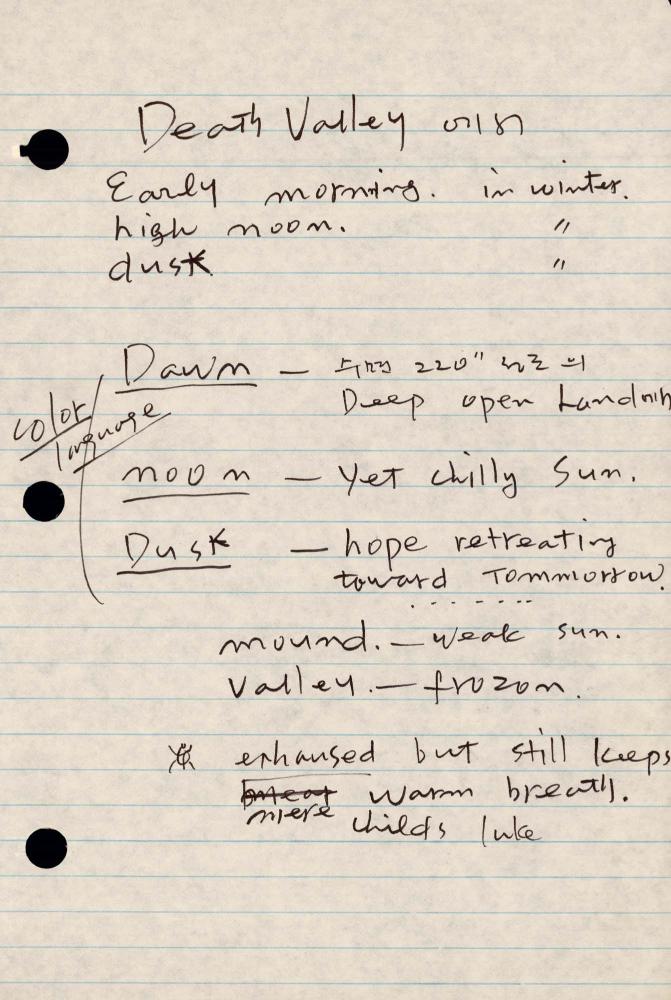 Death Valley 에서
Early morning. in winter.
high noon. "
dusk "
color
language
Dawn — 수면 220" 의
Deep open
noon — Yet chilly Sun.
Dusk — hope retreating
toward Tommorrow.
mound. — weak sun.
Valley. — frozon.
※ exhaused but still keeps
warm breath.
mere childs luke